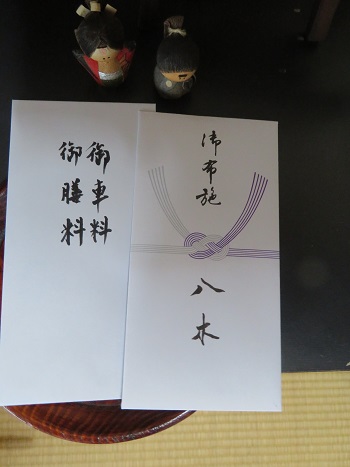 御車料
御膳料
御布施
八木